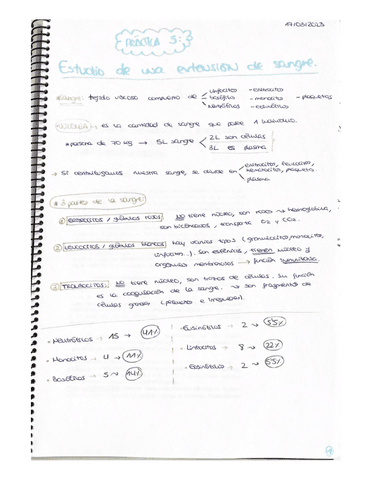 17/03/2023
PRÁCTICA 5:
Estudio de una extensión de sangre.
SANGRE: tejido viscoso compuesto de
linfocitos - eritrocitos
basófilos - monocitos - plaquetas
neutrófilos - eosinófilos
→ es la cantidad de sangre que posee 1 individuo.
* persona de 70 kg → 5L sangre
2L son células
3L es plasma
→ Si centrifugamos nuestra sangre, se divide en
eritrocitos, leucocitos,
plaquetas
plasma
* 3 partes de la sangre:
① ERITROCITOS / glóbulos rojos: NO tiene núcleo, son rojos → hemoglobina,
son bicóncavos, transporte O2 y CO2.
② LEUCOCITOS / glóbulos blancos: hay varios tipos (granulocitos, monocitos,
linfocitos...). Son esféricos, tienen núcleo y
orgánulos membranosos → función inmunitaria.
③ TROMBOCITOS: NO tiene núcleo, son trozos de células. Su función
es la coagulación de la sangre. → son fragmentos de
células grandes (pequeños e irregulares).
- Neutrófilos → 15 → 41%
- Monocitos → 4 → 11%
- Basófilos → 5 → 14%
- Eosinófilos → 2 → 5'5%
- Linfocitos → 8 → 22%
- Eosinófilos → 2 → 5'5%